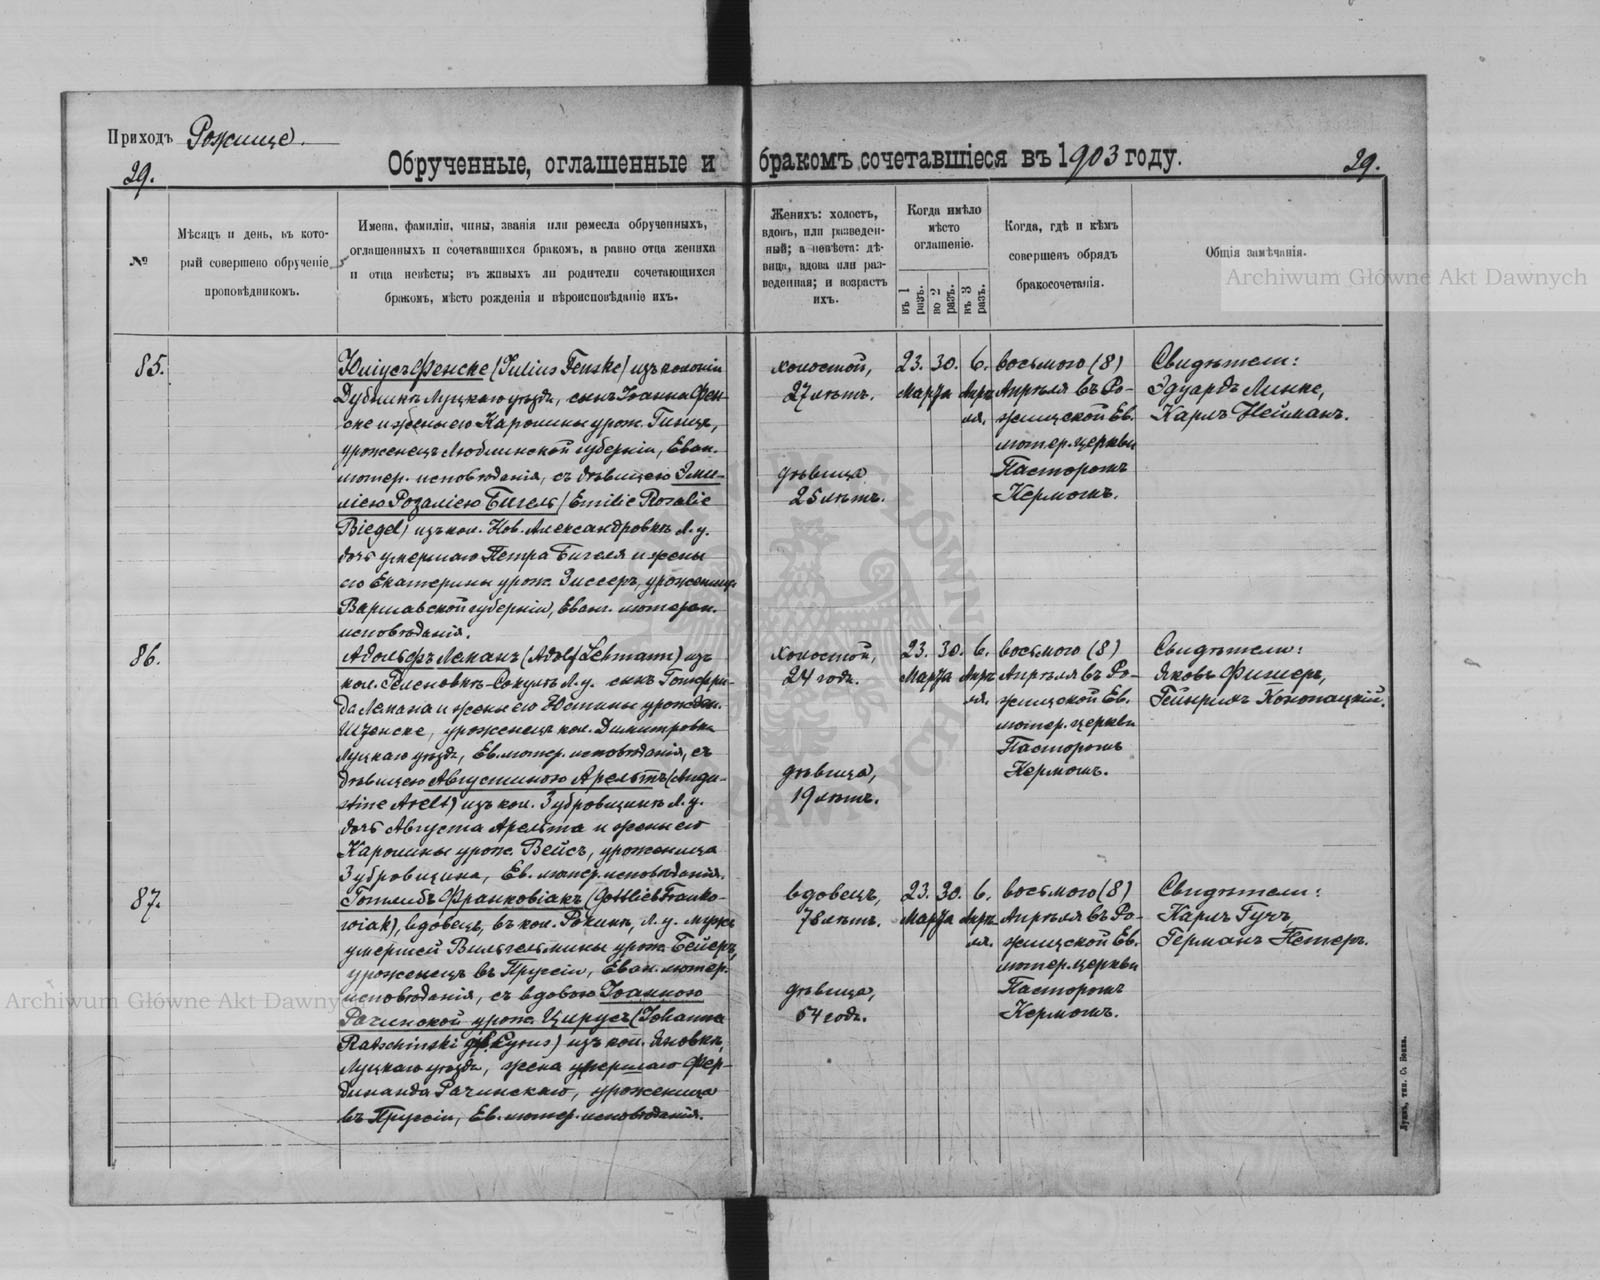 Приходъ Рожище.
29.
Обрученные, оглашенные и бракомъ сочетавшіеся въ 1903 году.
29.
№
Мѣсяцъ и день, въ кото-
рый совершено обрученіе
проповѣдникомъ.
Имена, фамиліи, чины, званія или ремесла обрученныхъ,
оглашенныхъ и сочетавшихся бракомъ, а равно отца жениха
и отца невѣсты; въ живыхъ ли родители сочетающихся
бракомъ, мѣсто рожденія и вѣроисповѣданіе ихъ.
Женихъ: холостъ,
вдовъ, или разведен-
ный; а невѣста: дѣ-
вица, вдова или раз-
веденная; и возрастъ
ихъ.
Когда имѣло
мѣсто
оглашеніе.
въ 1 разъ.
во 2 разъ.
въ 3 разъ.
Когда, гдѣ и кѣмъ
совершенъ обрядъ
бракосочетанія.
Общія замѣчанія.
Archiwum Główne Akt Dawnych
85.
Юліусъ Фенске (Julius Fenske) изъ колоніи
Дубникъ Луцкаго уѣзда, сынъ Іоанна Фен-
ске и жены его Каролины урож. Гинцъ,
уроженецъ Люблинской губерніи, Еван.
лютер. исповѣданія, съ дѣвицею Эми-
ліею Розаліею Бигель (Emilie Rosalie
Biegel) изъ кол. Нов. Александровка Л. у.
дочь умершаго Петра Бигеля и жены
его Екатерины урож. Зиссеръ, уроженица
Варшавской губерніи, Еванг. лютеран.
исповѣданія.
холостой,
27 лѣтъ.
дѣвица
25 лѣтъ.
23. 30. 6.
Марта Апрѣ-
ля.
восьмого (8)
Апрѣля въ Ро-
жищской Ев.
лютер. церкви
Пасторомъ
Кермомъ.
Свидѣтели:
Эдуардъ Линке,
Карлъ Нейманъ.
86.
Адольфъ Леманъ (Adolf Lehmann) изъ
кол. Гелсновка-Сокулъ Л. у. сынъ Готфри-
да Лемана и жены его Юстины урожден.
Шзенске, уроженецъ кол. Димитровка
Луцкаго уѣзда, Ев. лютер. исповѣданія, съ
дѣвицею Августиною Арельтъ (Augu-
stine Arelt) изъ кол. Зубровщинъ Л. у.
дочь Августа Арельта и жены его
Каролины урож. Вейсъ, уроженица
Зубровщина, Ев. лютер. исповѣданія.
холостой,
24 года.
дѣвица,
19 лѣтъ.
23. 30. 6.
Марта Апрѣ-
ля.
восьмого (8)
Апрѣля въ Ро-
жищской Ев.
лютер. церкви
Пасторомъ
Кермомъ.
Свидѣтели:
Яковъ Фишеръ,
Гейнрихъ Конопацкій.
87.
Готлибъ Франковіакъ (Gottlieb Franko-
wiak), вдовецъ, въ кол. Рокини, Л. у. мужъ
умершей Вильгельмины урож. Бейеръ,
уроженецъ въ Пруссіи, Еван. лютер.
исповѣданія, съ вдовою Іоанною
Рачинской урож. Цирусъ (Johanna
Ratschinski geb. Cyrus) изъ кол. Яновка,
Луцкаго уѣзда, жена умершаго Фер-
динанда Рачинскаго, уроженица
въ Пруссіи, Ев. лютер. исповѣданія.
вдовецъ,
78 лѣтъ.
дѣвица,
64 года.
23. 30. 6.
Марта Апрѣ-
ля.
восьмого (8)
Апрѣля въ Ро-
жищской Ев.
лютер. церкви
Пасторомъ
Кермомъ.
Свидѣтели:
Карлъ Гучъ,
Германъ Петеръ.
Archiwum Główne Akt Dawnych
Луцкъ, тип. С. Бокія.